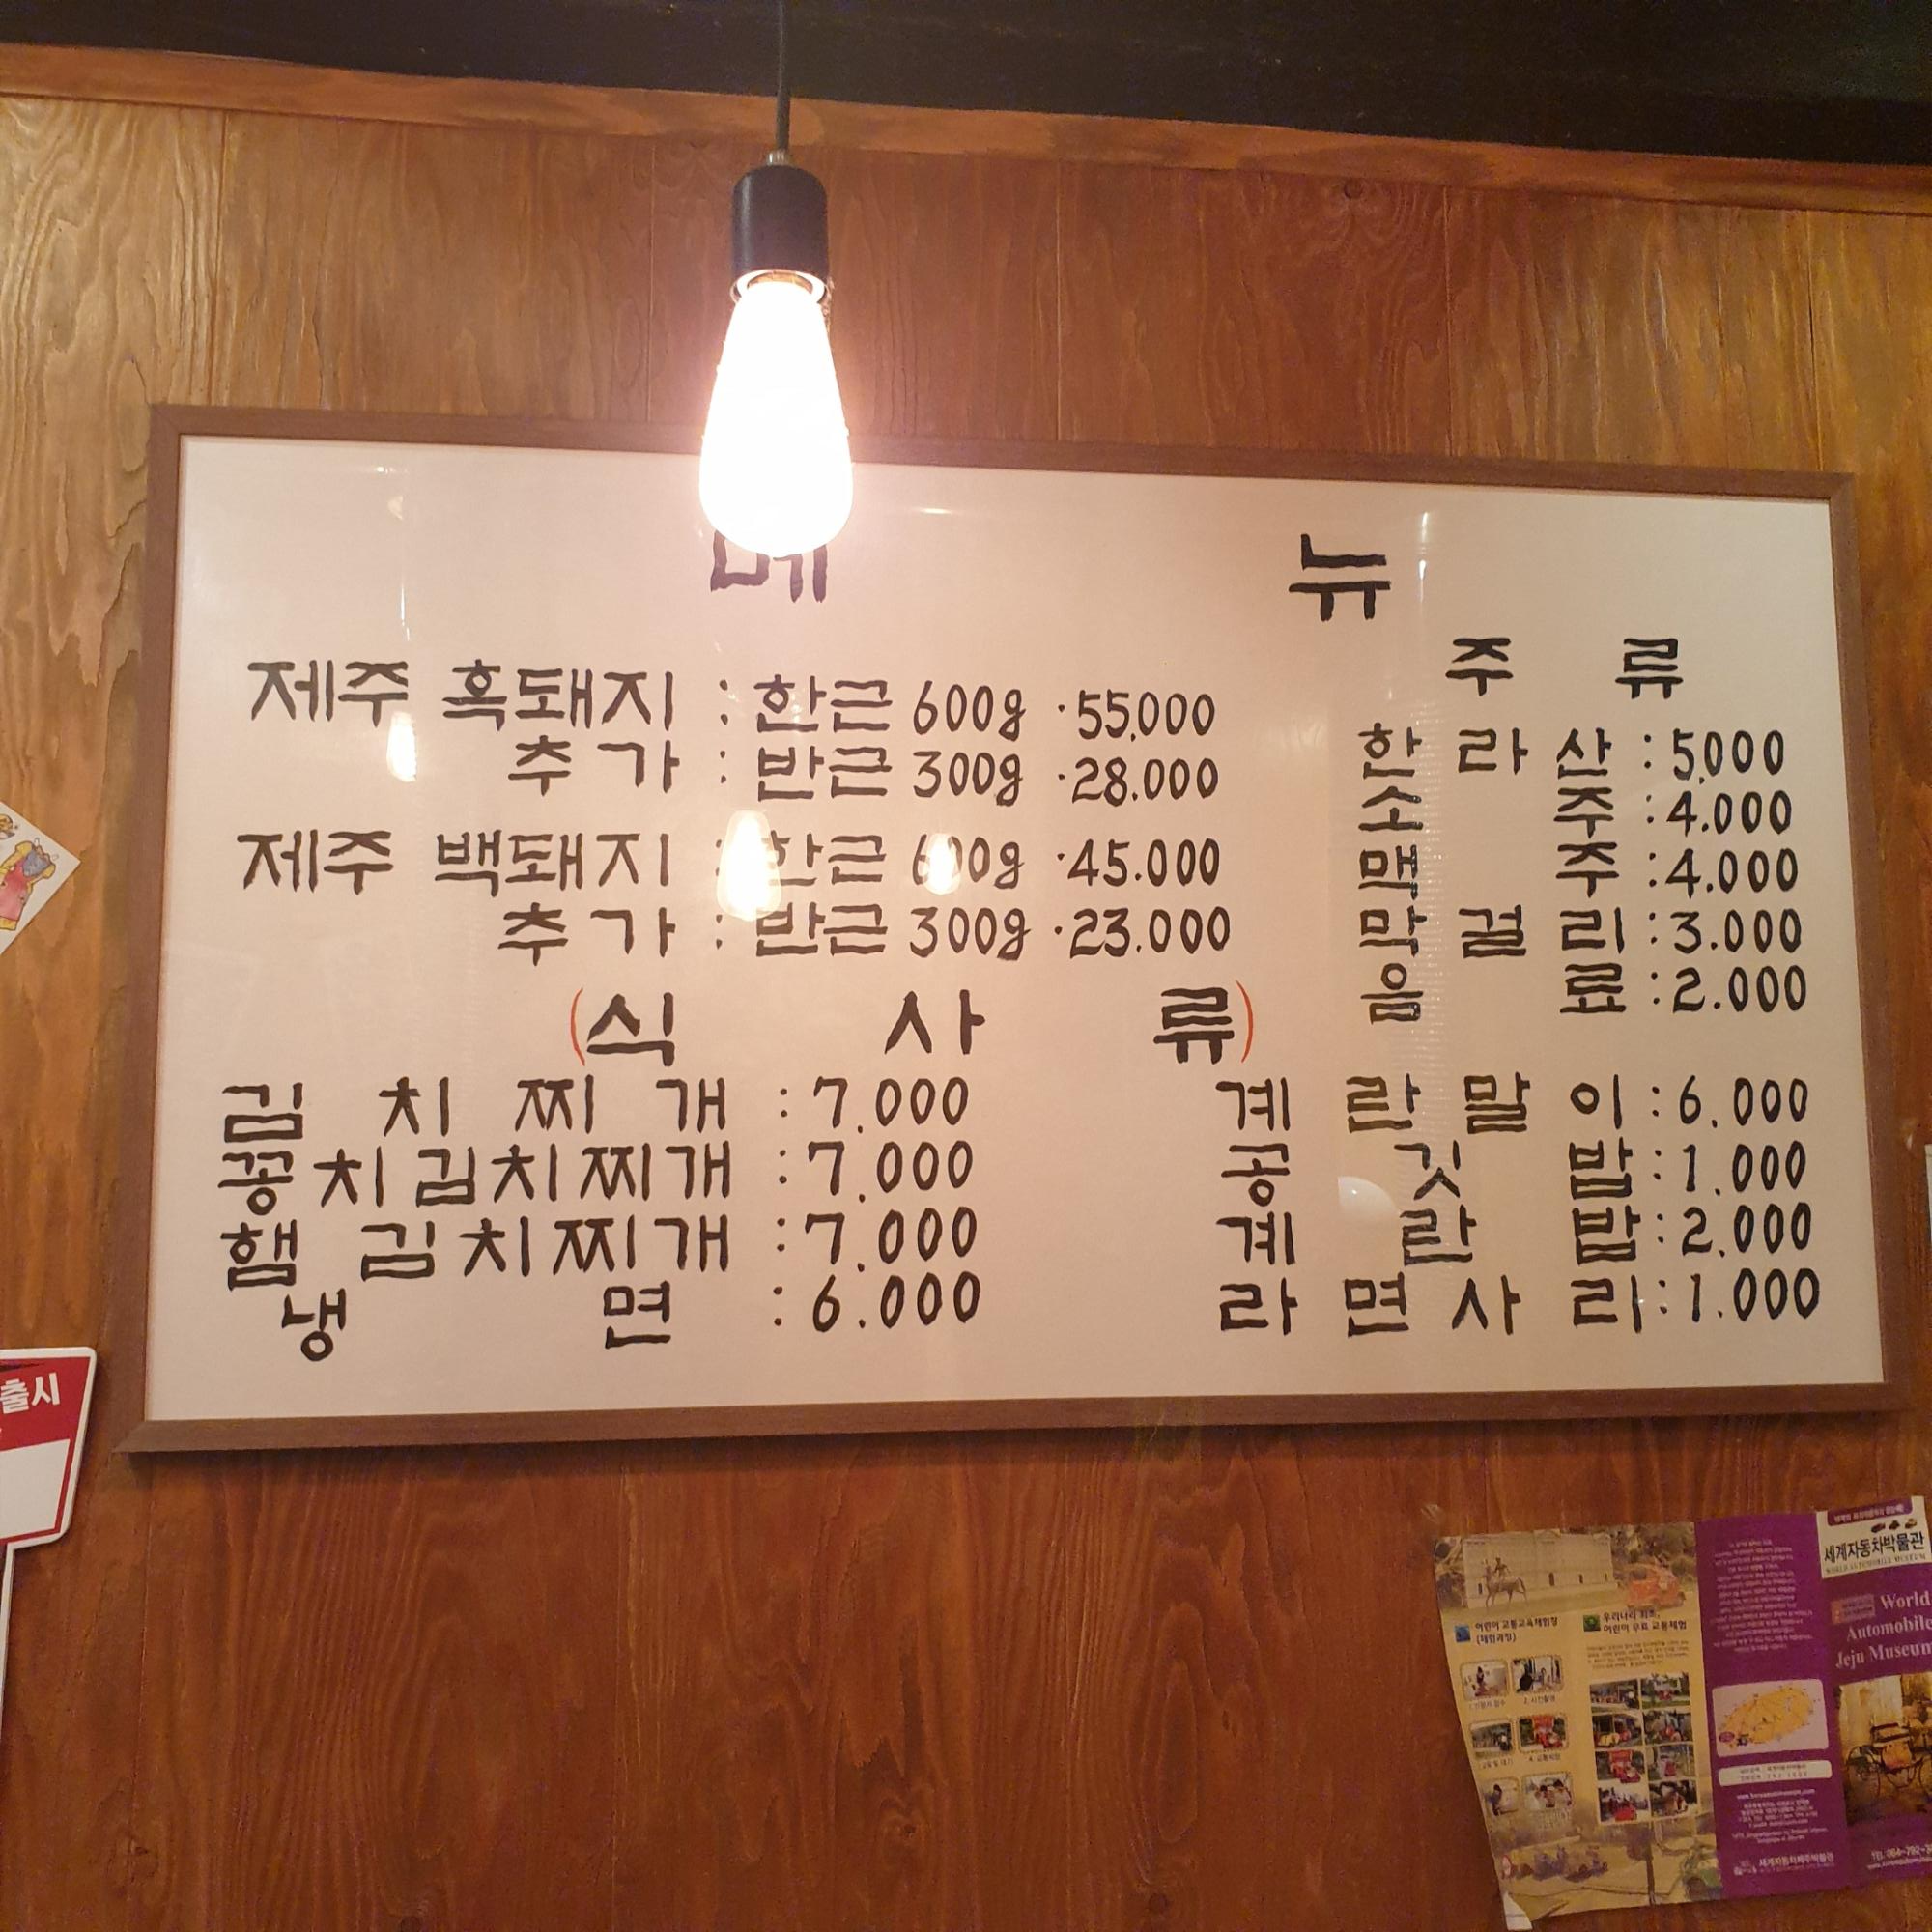 메 뉴
제주 흑돼지 : 한근 600g ·55,000
추가 : 반근 300g ·28.000
제주 백돼지 : 한근 600g ·45.000
추가 : 반근 300g ·23.000
주 류
한 라 산 : 5,000
소 주 : 4.000
맥 주 : 4.000
막 걸 리 : 3.000
음 료 : 2.000
(식 사 류)
김 치 찌 개 : 7.000
꽁치김치찌개 : 7.000
햄 김치찌개 : 7.000
냉 면 : 6.000
계 란 말 이 : 6.000
공 깃 밥 : 1.000
계 란 밥 : 2.000
라 면 사 리 : 1.000
출시
세계자동차박물관
World
Automobile
Jeju Museum
어린이 교통교육체험장
(체험과정)
우리나라 최초,
어린이 무료 교통체험
세계자동차제주박물관